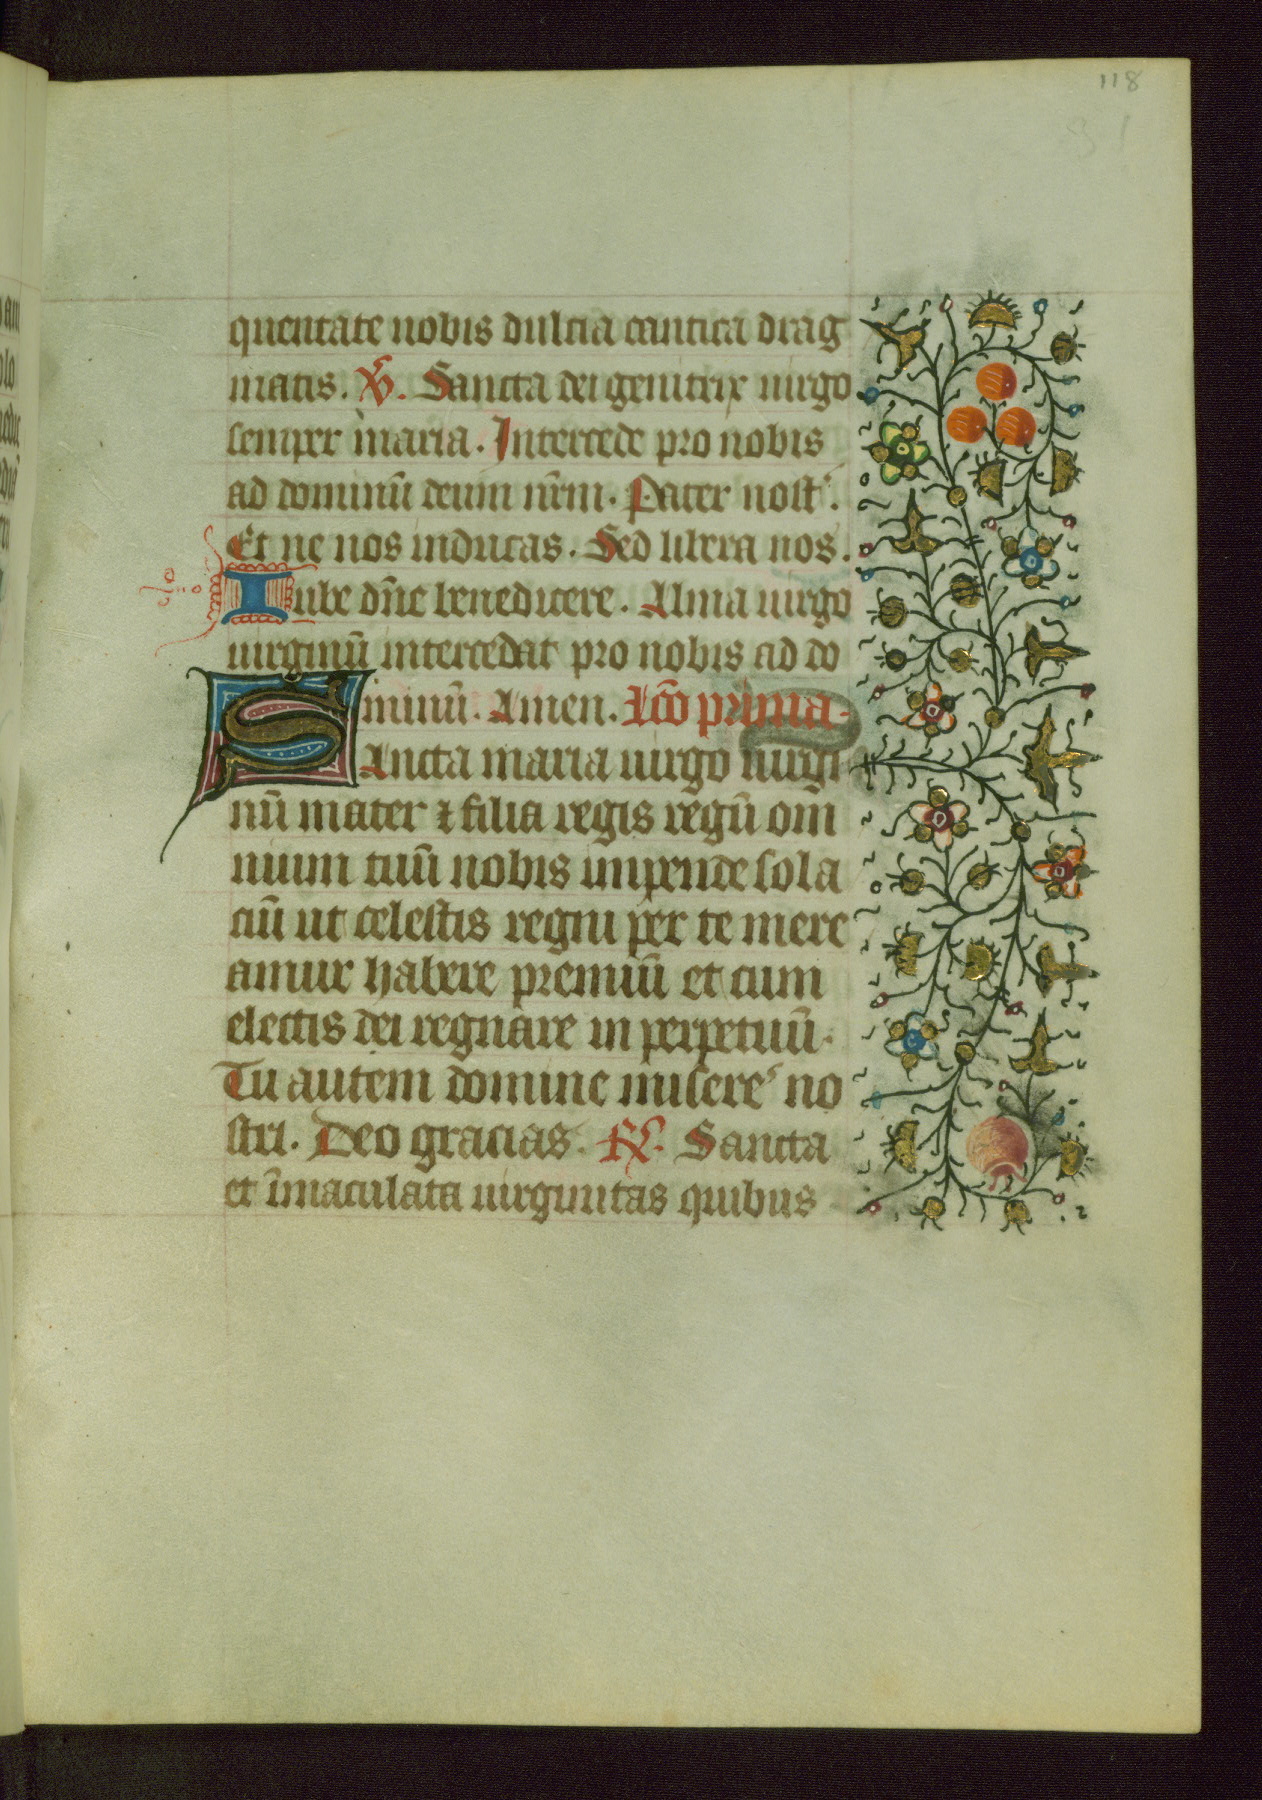 118
quentate nobis dulcia cantica drag
matis. V̄. Sancta dei genitrix uirgo
semper maria. Intercede pro nobis
ad dominū deum nr̄m. Pater nost'.
Et ne nos inducas. Sed libera nos.
Iube dn̄e benedicere. Alma uirgo
uirginū intercedat pro nobis ad do
minū. Amen. Lcō prima.
SAncta maria uirgo uirgi
nū mater ⁊ filia regis regū om̄
nium tuū nobis impende sola
ciū ut celestis regni per te mere
amur habere premiū et cum
electis dei regnare in perpetuū.
Tu autem domine misere' no
stri. Deo gracias. R̄. Sancta
et īmaculata uirginitas quibus